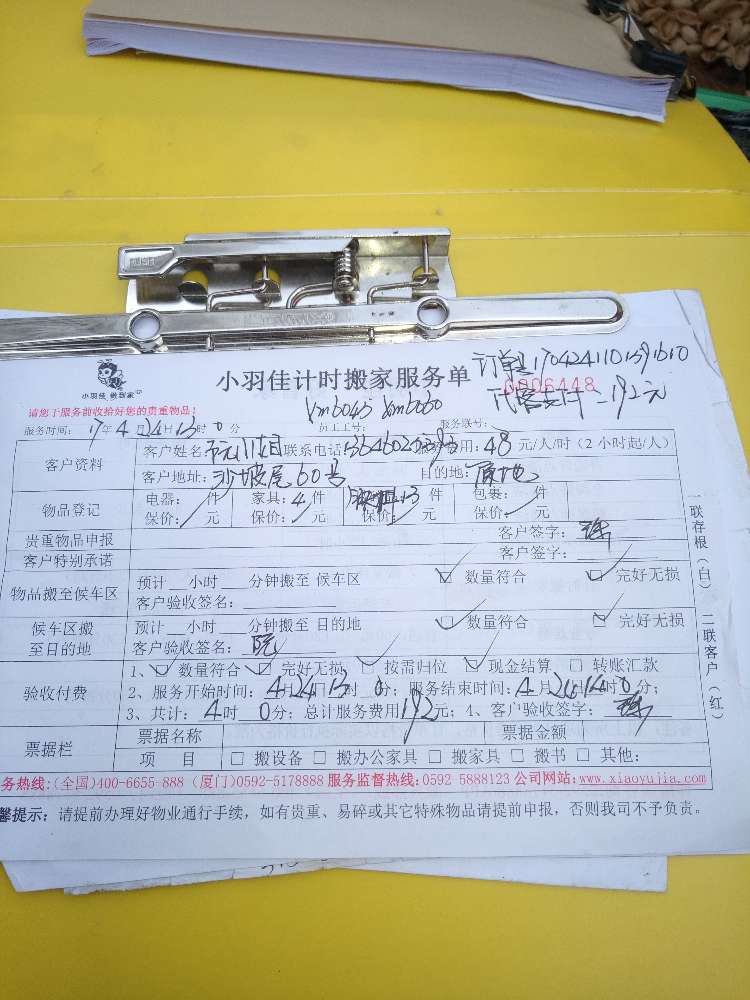 小羽佳 做到家
小羽佳计时搬家服务单
订单号1704241101591610
0006448
代客支付 192元
请您于服务前收拾好您的贵重物品!
xm6045 xm6060
服务时间: 17年4月24日13时0分 员工工号: 服务联号:
客户资料
客户姓名: 联系电话: 费用:48元/人/时(2小时起/人)
客户地址:沙坡尾60号 目的地:原地
物品登记
电器: 件 家具:4件 13件 包裹: 件
保价: 元 保价: 元 保价: 元 保价: 元
贵重物品申报 客户签字:
客户特别承诺 客户签字:
物品搬至候车区
预计__小时___分钟搬至 候车区 ☑ 数量符合 ☑ 完好无损
客户验收签名:
候车区搬至目的地
预计__小时___分钟搬至 目的地 ☑ 数量符合 ☑ 完好无损
客户验收签名:阮
验收付费
1、☑ 数量符合 ☑ 完好无损 ☑ 按需归位 ☑ 现金结算 □ 转账汇款
2、服务开始时间:4月24日13时0分;服务结束时间:4月24日14时0分;
3、共计:4时0分;总计服务费用192元;4、客户验收签字:
票据栏
票据名称 票据金额
项 目 □ 搬设备 □ 搬办公家具 □ 搬家具 □ 搬书 □ 其他:
一联存根(白) 二联客户(红)
务热线:(全国)400-6655-888 (厦门)0592-5178888 服务监督热线:0592 5888123 公司网站:www.xiaoyujia.com
馨提示:请提前办理好物业通行手续,如有贵重、易碎或其它特殊物品请提前申报,否则我司不予负责。